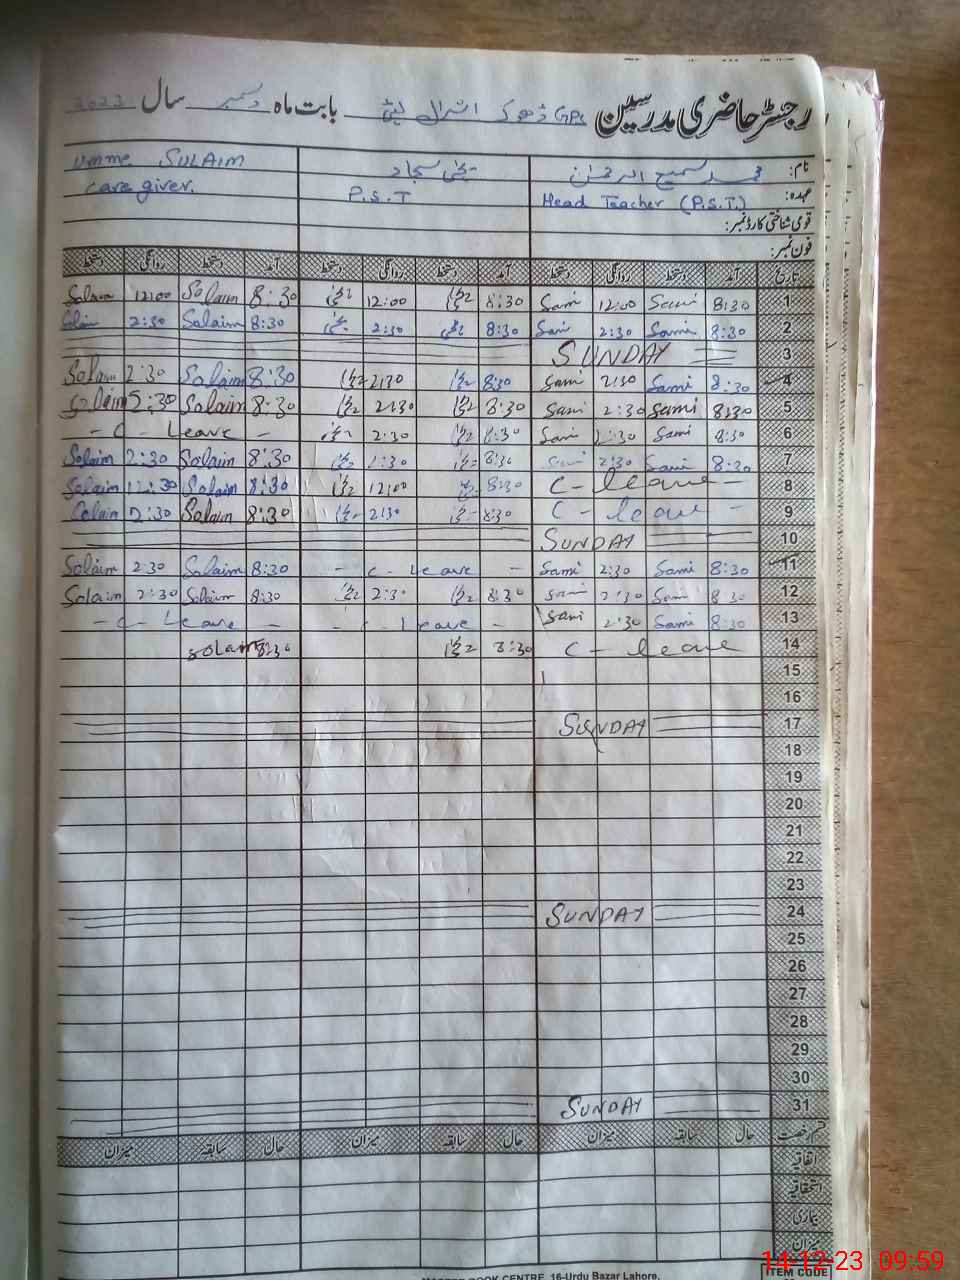 رجسٹر حاضری مدرسین GPS ڈھوک بابت ماہ دسمبر سال 2023
نام: محمد سمیع الرحمٰن یحییٰ سجاد Umme SULAIM
عہدہ: Head Teacher (P.S.T.) P.S.T care giver.
قومی شناختی کارڈ نمبر:
فون نمبر:
تاریخ آمد دستخط روانگی دستخط آمد دستخط روانگی دستخط آمد دستخط روانگی دستخط
1 8:30 Sami 12:00 Sami 8:30 12:00 8:30 Solaim 12:00 Solaim
2 8:30 Sami 2:30 Sami 8:30 یحییٰ 2:30 یحییٰ 8:30 Solaim 2:30 Solaim
3 SUNDAY
4 8:30 Sami 2:30 Sami 8:30 2:30 8:30 Solaim 2:30 Solaim
5 8:30 Sami 2:30 Sami 8:30 2:30 8:30 Solaim 2:30 Solaim
6 8:30 Sami 2:30 Sami 8:30 2:30 - C - Leave -
7 8:30 Sami 2:30 Sami 8:30 2:30 8:30 Solaim 2:30 Solaim
8 C - leave - 8:30 12:00 8:30 Solaim 12:30 Solaim
9 C - leave - 8:30 2:30 8:30 Solaim 2:30 Solaim
10 SUNDAY
11 8:30 Sami 2:30 Sami - C - Leave - 8:30 Solaim 2:30 Solaim
12 8:30 Sami 2:30 Sami 8:30 2:30 8:30 Solaim 2:30 Solaim
13 8:30 Sami 2:30 Sami - C - Leave - - C - Leave -
14 C - leave 8:30 8:30 Solaim
15
16
17 SUNDAY
18
19
20
21
22
23
24 SUNDAY
25
26
27
28
29
30
31 SUNDAY
قسم رخصت حال سابقہ میزان حال سابقہ میزان حال سابقہ میزان
اتفاقیہ
استحقاقیہ
بیماری
میزان
ITEM CODE
BOOK CENTRE, 16-Urdu Bazar Lahore.
14-12-23 09:59